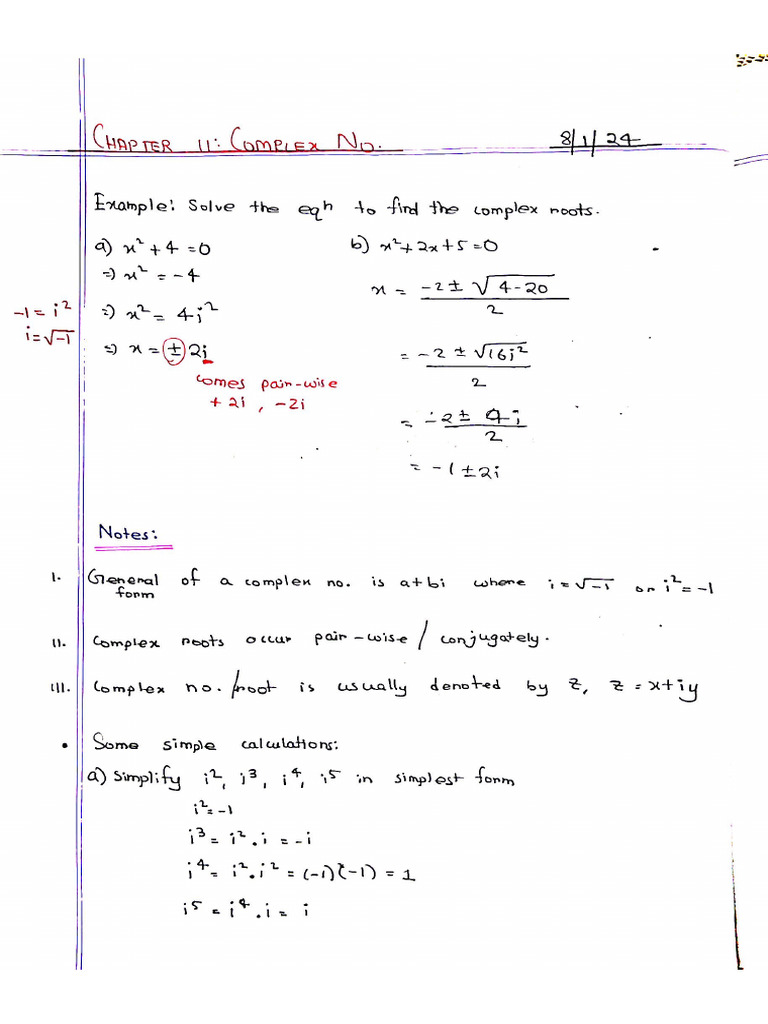 CHAPTER 11: COMPLEX NO. 8/1/24
Example: Solve the eqn to find the complex roots.
a) x² + 4 = 0
=) x² = -4
=) x² = 4i²
=) x = ± 2i
comes pair-wise
+ 2i , -2i
-1 = i²
i = √-1
b) x² + 2x + 5 = 0
x = (-2 ± √(4-20))/2
= (-2 ± √(16i²))/2
= (-2 ± 4i)/2
= -1 ± 2i
Notes:
I. General form of a complex no. is a+bi where i = √-1 or i² = -1
II. Complex roots occur pair-wise / conjugately.
III. Complex no./root is usually denoted by z, z = x+iy
• Some simple calculations:
a) Simplify i², i³, i⁴, i⁵ in simplest form
i² = -1
i³ = i² . i = -i
i⁴ = i² . i² = (-1)(-1) = 1
i⁵ = i⁴ . i = i